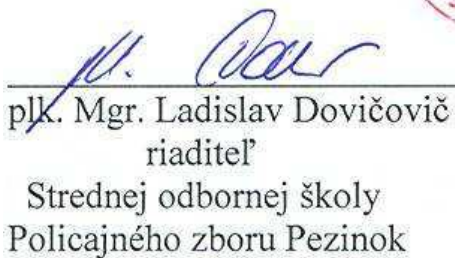 plk. Mgr. Ladislav Dovičovič
riaditeľ
Strednej odbornej školy
Policajného zboru Pezinok